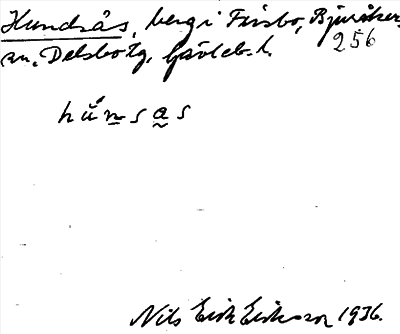 Hundsås, berg i Furubo, Bjuråker
sn, Delsbo tg. Gävleb. l.
256
hǘnsas
Nils Erik Eriksson 1936.